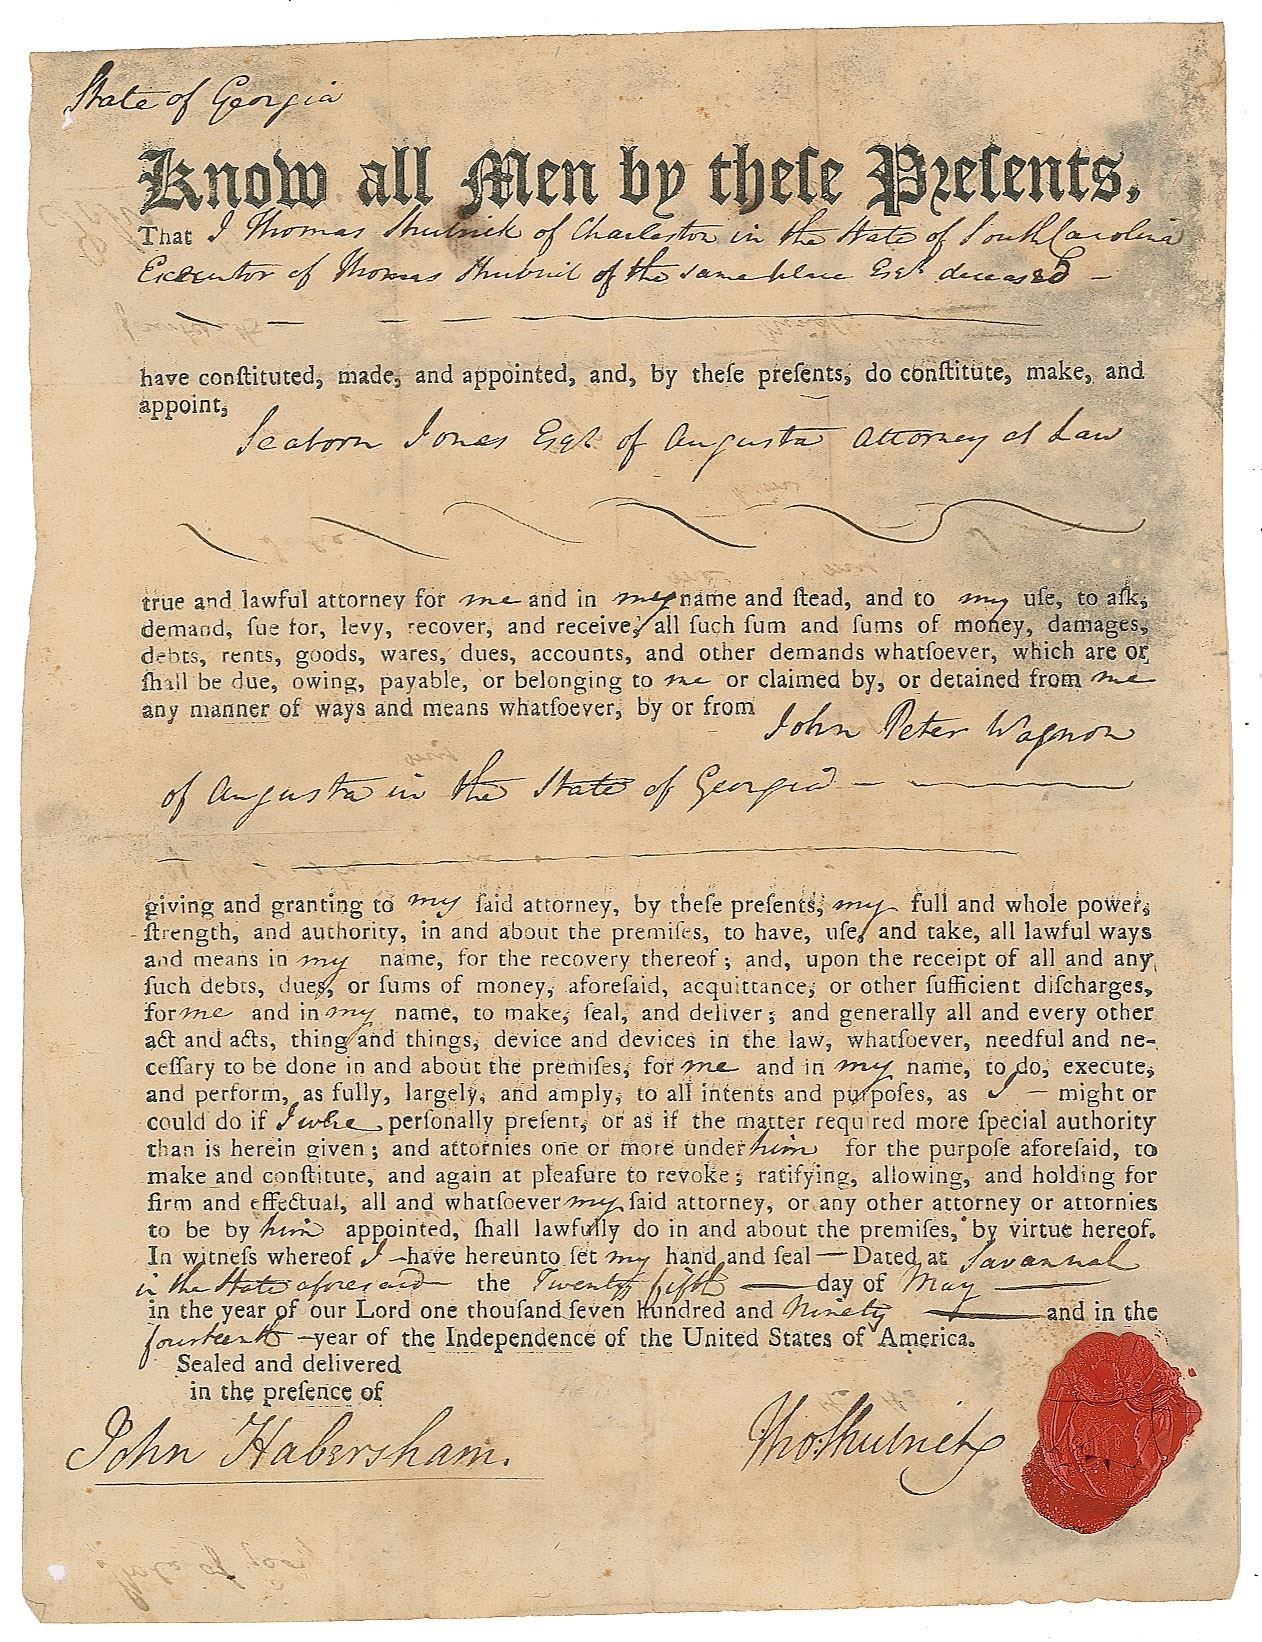 State of Georgia
Know all Men by theſe Preſents,
That I Thomas Shubrick of Charleston in the State of South Carolina
Executor of Thomas Shubrick of the same place Esqr. deceased
have conſtituted, made, and appointed, and, by theſe preſents, do conſtitute, make, and
appoint,
Seaborn Jones Esqr of Augusta Attorney at Law
true and lawful attorney for me and in my name and ſtead, and to my uſe, to aſk,
demand, ſue for, levy, recover, and receive, all ſuch ſum and ſums of money, damages,
debts, rents, goods, wares, dues, accounts, and other demands whatſoever, which are or
ſhall be due, owing, payable, or belonging to me or claimed by, or detained from me
any manner of ways and means whatſoever, by or from John Peter Wagnon
of Augusta in the State of Georgia
giving and granting to my ſaid attorney, by theſe preſents, my full and whole power,
ſtrength, and authority, in and about the premiſes, to have, uſe, and take, all lawful ways
and means in my name, for the recovery thereof; and, upon the receipt of all and any
ſuch debts, dues, or ſums of money, aforeſaid, acquittance, or other ſufficient diſcharges,
for me and in my name, to make, ſeal, and deliver; and generally all and every other
act and acts, thing and things, device and devices in the law, whatſoever, needful and ne-
ceſſary to be done in and about the premiſes, for me and in my name, to do, execute,
and perform, as fully, largely, and amply, to all intents and purpoſes, as I might or
could do if I were perſonally preſent, or as if the matter required more ſpecial authority
than is herein given; and attornies one or more under him for the purpoſe aforeſaid, to
make and conſtitute, and again at pleaſure to revoke; ratifying, allowing, and holding for
firm and effectual, all and whatſoever my ſaid attorney, or any other attorney or attornies
to be by him appointed, ſhall lawfully do in and about the premiſes, by virtue hereof.
In witneſs whereof I have hereunto ſet my hand and ſeal — Dated at Savannah
in the State aforesaid the Twenty fifth day of May
in the year of our Lord one thouſand ſeven hundred and Ninety and in the
fourteenth year of the Independence of the United States of America.
Sealed and delivered
in the preſence of
John Habersham.
Tho: Shubrick